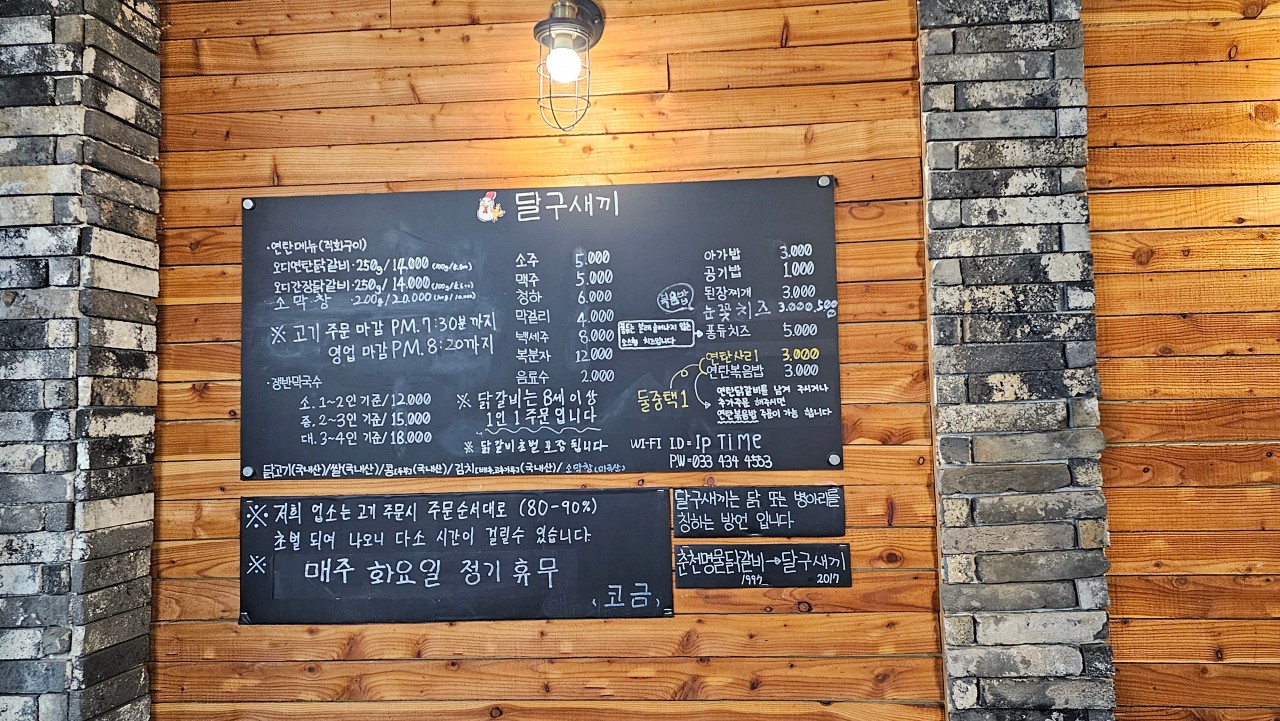 달구새끼
·연탄메뉴(직화구이)
오디연탄닭갈비·250g/14,000
오디간장닭갈비·250g/14,000
소막창 200g/20,000
※ 고기 주문 마감 PM.7:30분까지
영업 마감 PM.8:20까지
·쟁반막국수
소. 1~2인 기준/12,000
중. 2~3인 기준/15,000
대. 3~4인 기준/18,000
소주 5.000
맥주 5.000
청하 6.000
막걸리 4.000
백세주 8.000
복분자 12.000
음료수 2.000
※ 닭갈비는 8세 이상
1인 1주문입니다
※ 닭갈비초벌 포장 됩니다
아가밥 3.000
공기밥 1.000
된장찌개 3.000
볶음밥
눈꽃치즈 3.000
퐁듀는 원래 늘어나지 않는
소스형 치즈입니다
퐁듀치즈 5.000
연탄사리 3.000
연탄볶음밥 3.000
둘중택1
연탄닭갈비를 남겨 주시거나
추가주문 해주시면
연탄볶음밥 주문이 가능 합니다
WI-FI ID=Ip TiMe
P.W=033 434 4553
닭고기(국내산)/쌀(국내산)/콩(국내산)/김치(국내산)/소막창
※ 저희 업소는 고기 주문시 주문순서대로 (80-90%)
초벌 되여 나오니 다소 시간이 걸릴수 있습니다
※ 매주 화요일 정기 휴무
달구새끼는 닭 또는 병아리를
칭하는 방언 입니다
춘천명물닭갈비→달구새끼
2017